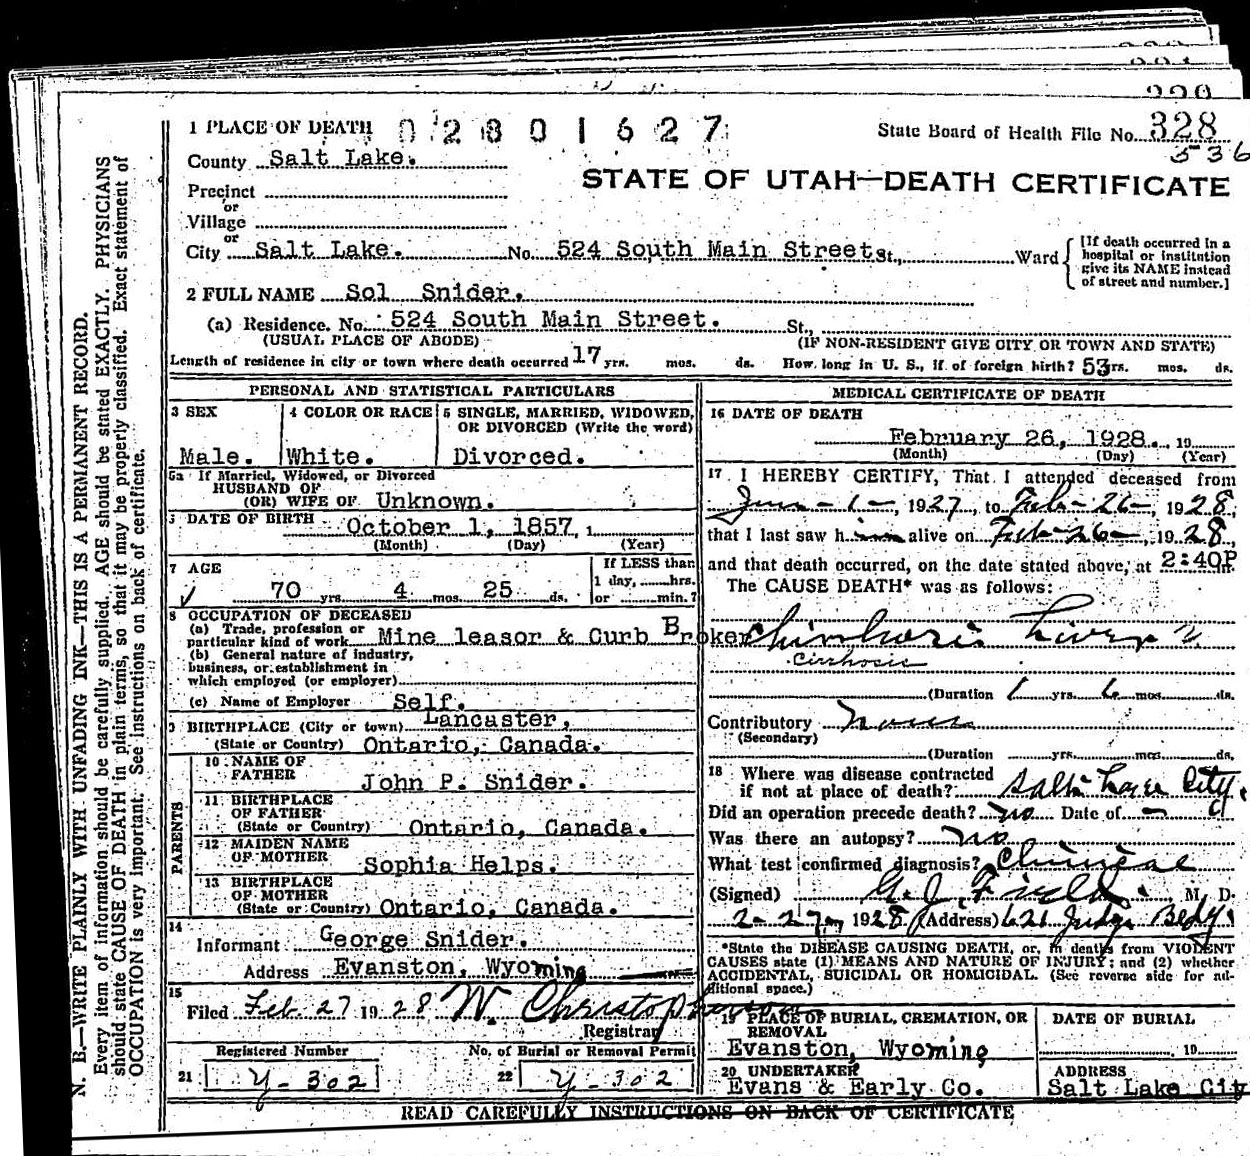 1 PLACE OF DEATH 02801627
State Board of Health File No. 328
536
County Salt Lake.
STATE OF UTAH—DEATH CERTIFICATE
Precinct
or
Village
or
City Salt Lake. No. 524 South Main Street St., Ward
[If death occurred in a hospital or institution give its NAME instead of street and number.]
2 FULL NAME Sol Snider.
(a) Residence. No. 524 South Main Street. St.,
(USUAL PLACE OF ABODE) (IF NON-RESIDENT GIVE CITY OR TOWN AND STATE)
Length of residence in city or town where death occurred 17 yrs. mos. ds. How long in U. S., if of foreign birth? 53 yrs. mos. ds.
PERSONAL AND STATISTICAL PARTICULARS
3 SEX
Male.
4 COLOR OR RACE
White.
5 SINGLE, MARRIED, WIDOWED,
OR DIVORCED (Write the word)
Divorced.
5a If Married, Widowed, or Divorced
HUSBAND OF
(OR) WIFE OF Unknown.
DATE OF BIRTH October 1, 1857, 1
(Month) (Day) (Year)
7 AGE
70 yrs. 4 mos. 25 ds.
If LESS than
1 day, hrs.
or min.?
8 OCCUPATION OF DECEASED
(a) Trade, profession or
particular kind of work Mine leasor & Curb Broker
(b) General nature of industry,
business, or establishment in
which employed (or employer)
(c) Name of Employer Self.
9 BIRTHPLACE (City or town) Lancaster,
(State or Country) Ontario, Canada.
PARENTS
10 NAME OF
FATHER John P. Snider.
11 BIRTHPLACE
OF FATHER
(State or Country) Ontario, Canada.
12 MAIDEN NAME
OF MOTHER Sophia Helps.
13 BIRTHPLACE
OF MOTHER
(State or Country) Ontario, Canada.
14
Informant George Snider.
Address Evanston, Wyoming
15
Filed Feb 27 1928 W. Christopherson
Registrar
Registered Number
21 Y-302
No. of Burial or Removal Permit
22 Y-302
MEDICAL CERTIFICATE OF DEATH
16 DATE OF DEATH
February 26, 1928. 19
(Month) (Day) (Year)
17 I HEREBY CERTIFY, That I attended deceased from
June - 1 - , 1927, to Feb - 26 - , 1928,
that I last saw him alive on Feb - 26 - , 1928,
and that death occurred, on the date stated above, at 2:40P
The CAUSE DEATH* was as follows:
Liver
cirrhosis
(Duration 1 yrs. 6 mos. ds.
Contributory None
(Secondary)
(Duration yrs. mos. ds.
18 Where was disease contracted
if not at place of death? Salt Lake City.
Did an operation precede death? no Date of —
Was there an autopsy? no
What test confirmed diagnosis? Clinical
(Signed) G. J. Field. M. D.
2-27-, 1928 (Address) 621 Judge Bldg.
*State the DISEASE CAUSING DEATH, or, in deaths from VIOLENT
CAUSES state (1) MEANS AND NATURE OF INJURY; and (2) whether
ACCIDENTAL, SUICIDAL OR HOMICIDAL. (See reverse side for additional space.)
19 PLACE OF BURIAL, CREMATION, OR
REMOVAL
Evanston, Wyoming
DATE OF BURIAL
19
20 UNDERTAKER
Evans & Early Co.
ADDRESS
Salt Lake City
READ CAREFULLY INSTRUCTIONS ON BACK OF CERTIFICATE
N. B.—WRITE PLAINLY WITH UNFADING INK—THIS IS A PERMANENT RECORD.
Every item of information should be carefully supplied. AGE should be stated EXACTLY. PHYSICIANS
should state CAUSE OF DEATH in plain terms, so that it may be properly classified. Exact statement of
OCCUPATION is very important. See instructions on back of certificate.